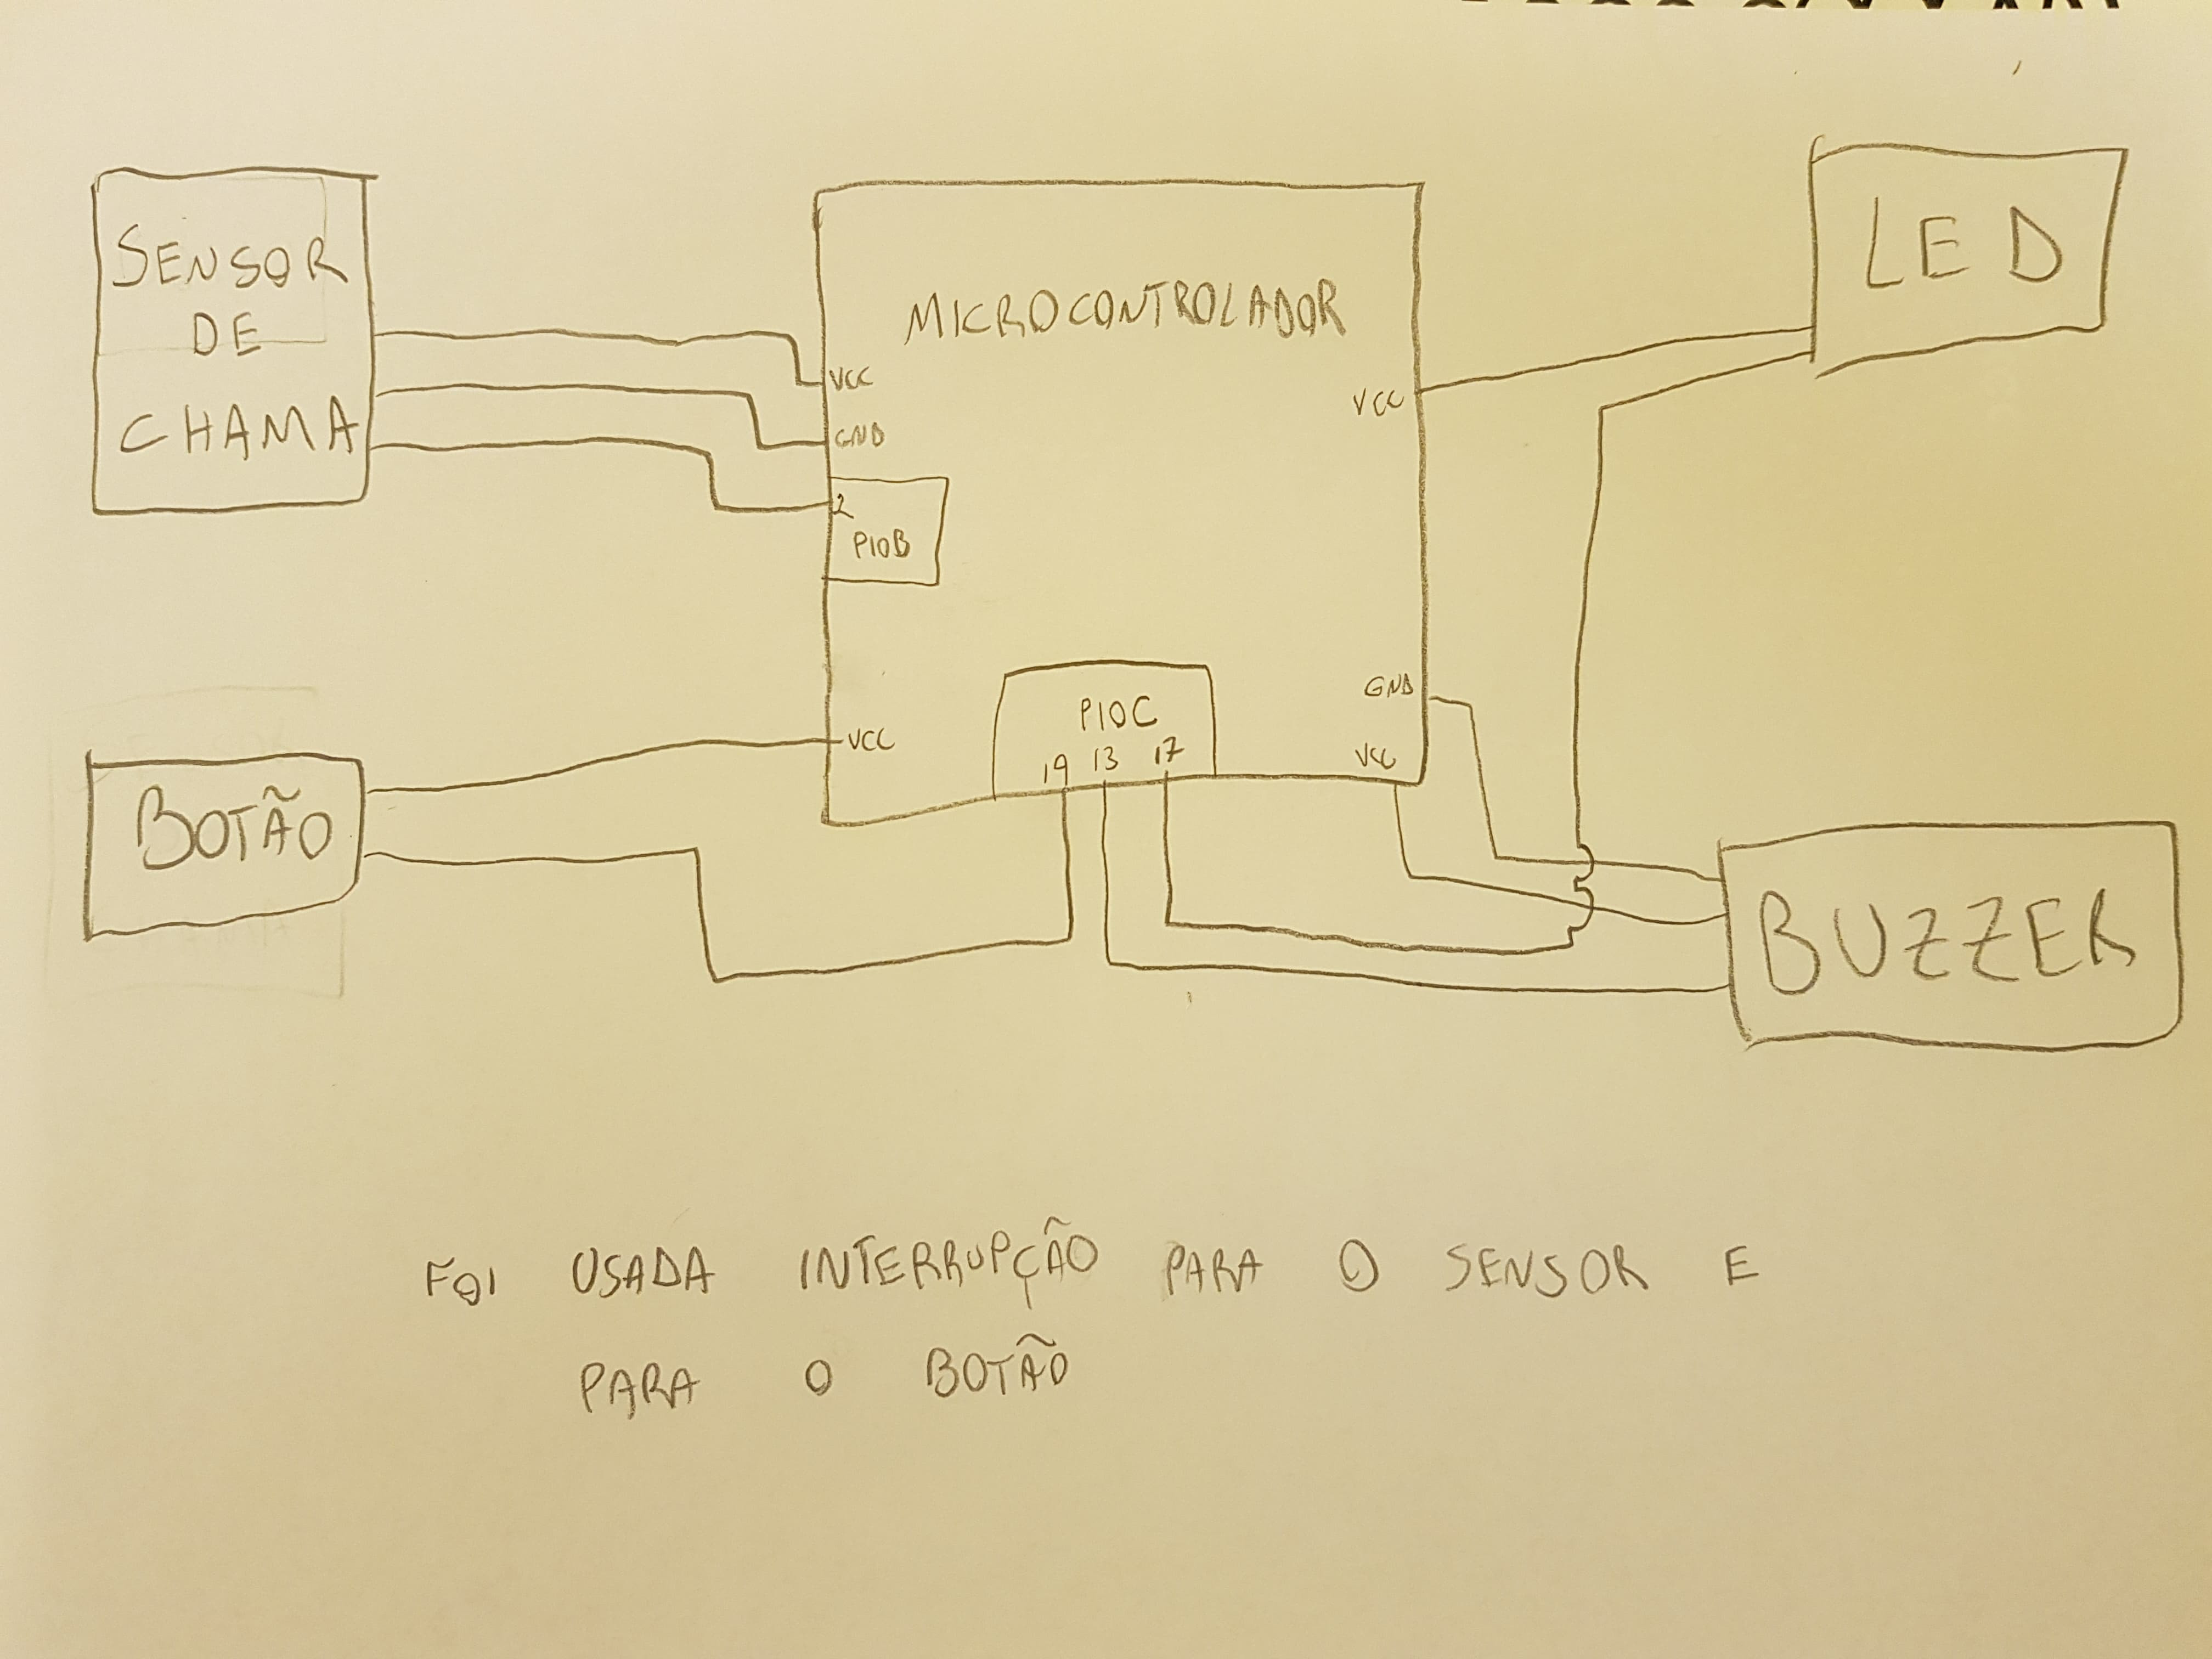 SENSOR
DE
CHAMA
MICROCONTROLADOR
LED
VCC
GND
2
PIOB
VCC
VCC
PIOC
19 13 17
GND
VCC
BOTÃO
BUZZER
FOI USADA INTERRUPÇÃO PARA O SENSOR E
PARA O BOTÃO